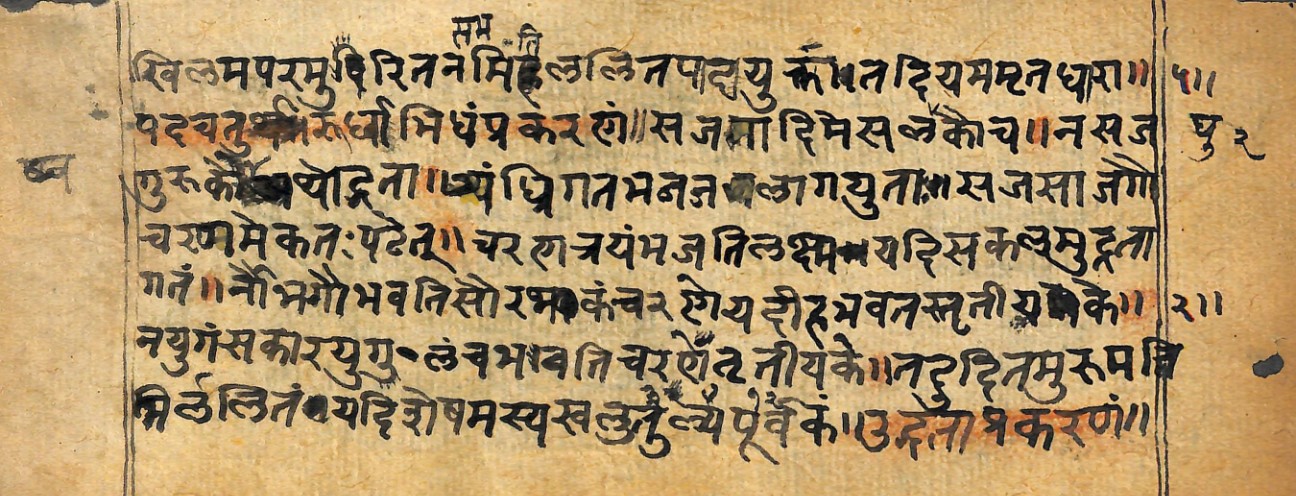 सम ति
खिलमपरमुपरितनमिह ललितपादयुक्ता॥ तदियममृतधारा॥ ५॥
पदचतुरूर्धाभिधंप्रकरणं॥ सजसादिमेसलकौच॥ नसज पु २
गुरुकै थोद्गता॥ त्र्यंघ्रिगतभनजलागयुताः॥ सजसाजगौ
चरणमेकतःपठेत्॥ चरणत्रयंभजतिलक्ष्म यदिसकलमुद्गता
गतं॥ र्नौभगौभवतिसौरभकंचरणेयदीहभवतस्तृतीयके॥ २॥
नयुगंसकारयुगुलंचभवतिचरणेतृतीयके॥ तदुदितमुरुमति
भिर्ललितं यदिशेषमस्यखलुतुल्यपूर्वकं॥ उद्गताप्रकरणं॥